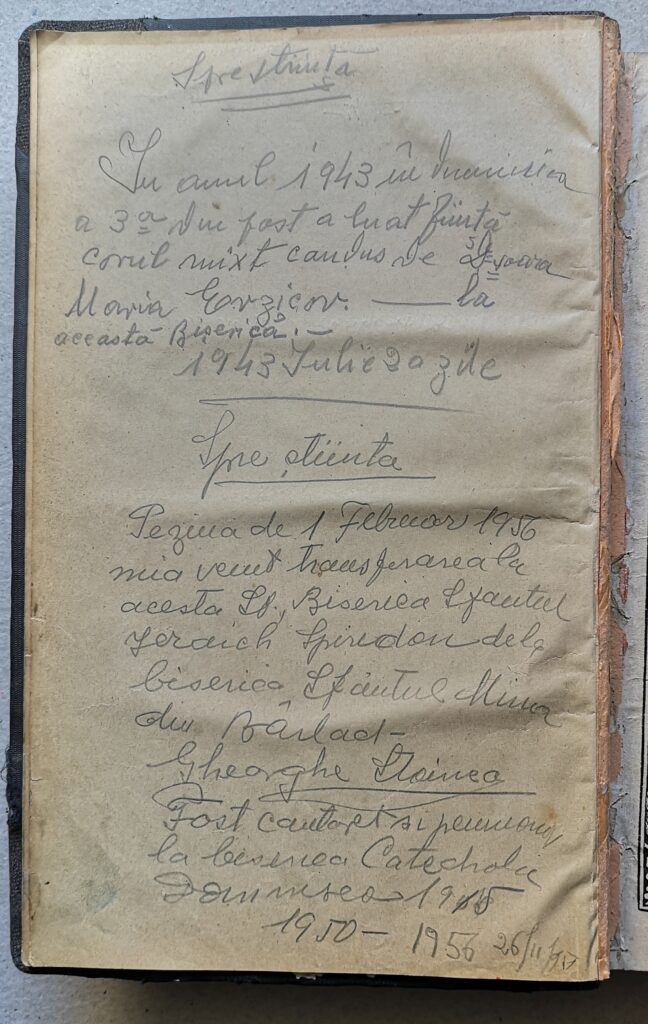 Spre stiință
In anul 1943 în Duminica
a 3a din post a luat ființă
corul mixt condus de D-șoara
Maria Erzicov. — la
această Biserică. –
1943 Iulie 2 a zile
Spre știința
Pe ziua de 1 Februar 1956
mia venit transferarea la
acesta Sf. Biserica Sfantul
Ierarch Spiridon dela
biserica Sfântul Mina
din Bârlad –
Gheorghe Stoinea
Fost cantaret si
la biserica Catedrala
1950 – 1956 26/11/